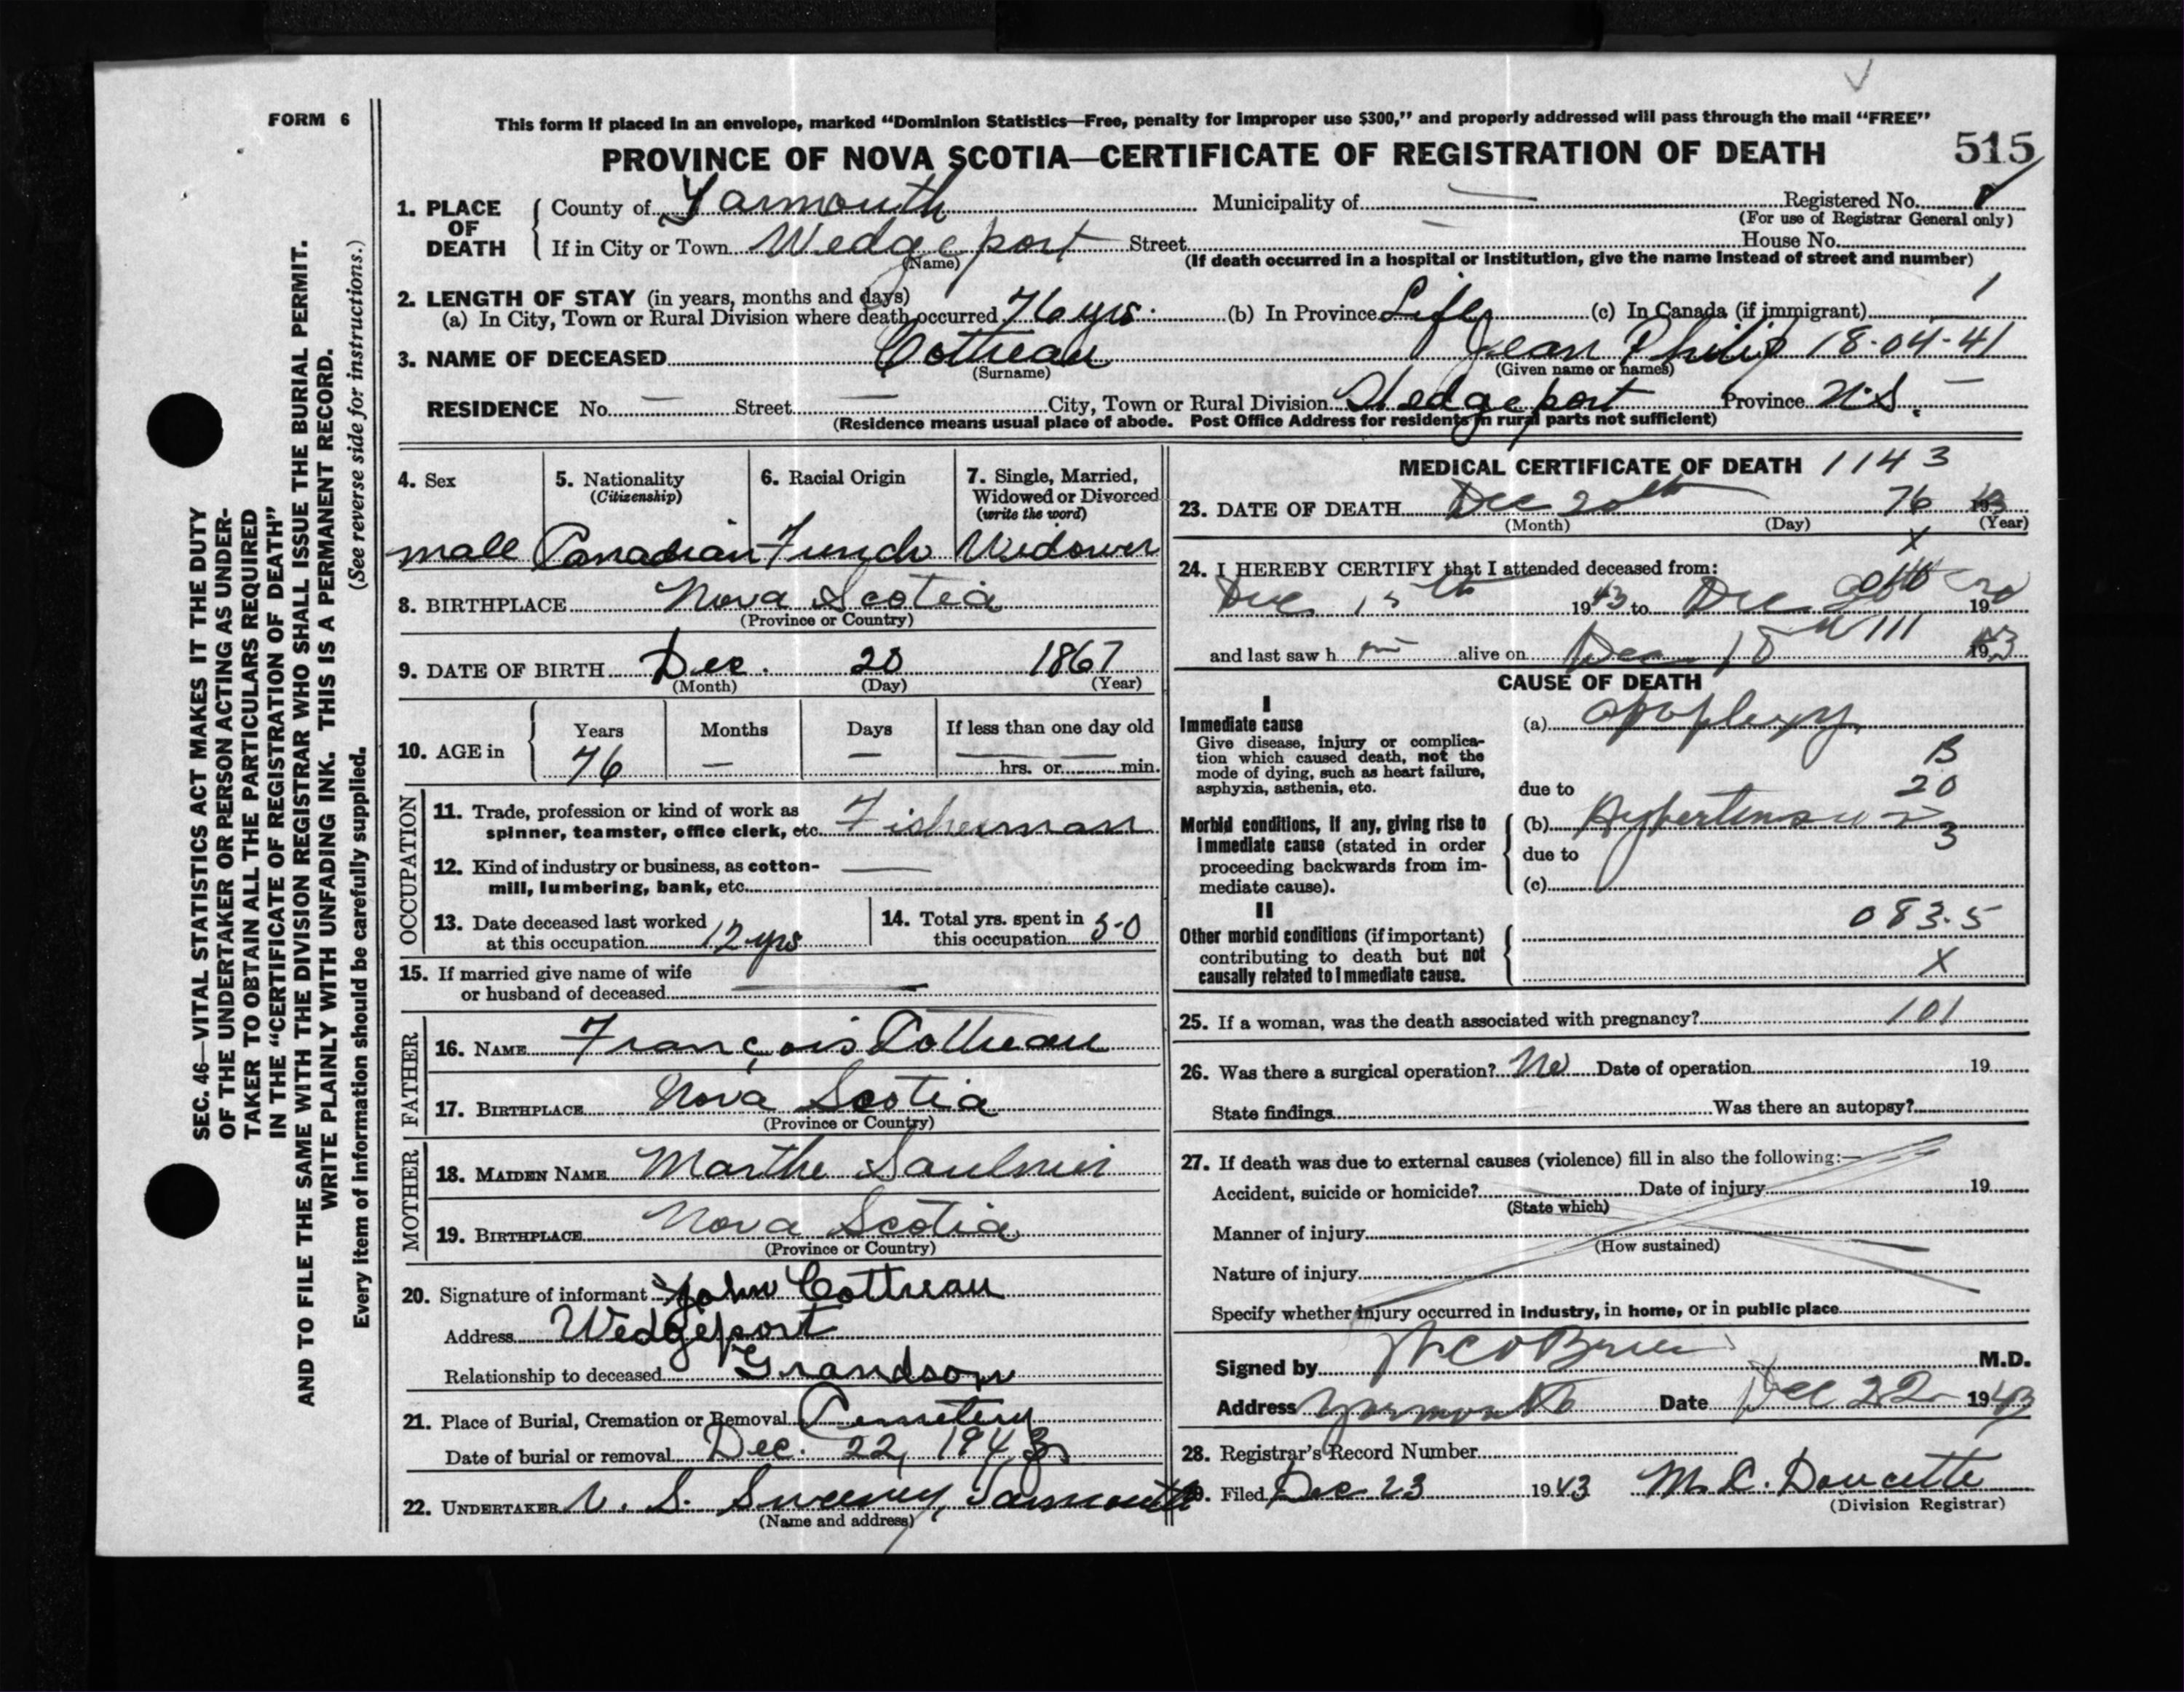 FORM 6
This form if placed in an envelope, marked “Dominion Statistics—Free, penalty for improper use $300,” and properly addressed will pass through the mail “FREE”
PROVINCE OF NOVA SCOTIA—CERTIFICATE OF REGISTRATION OF DEATH 515
1. PLACE OF DEATH { County of Yarmouth Municipality of — Registered No.
(For use of Registrar General only)
If in City or Town Wedgeport Street — House No.
(Name) (If death occurred in a hospital or institution, give the name instead of street and number)
2. LENGTH OF STAY (in years, months and days)
(a) In City, Town or Rural Division where death occurred 76 yrs. (b) In Province Life (c) In Canada (if immigrant) /
3. NAME OF DECEASED Cottreau Jean Philip 18-04-41
(Surname) (Given name or names)
RESIDENCE No. — Street — City, Town or Rural Division Wedgeport Province N.S. —
(Residence means usual place of abode. Post Office Address for residents in rural parts not sufficient)
4. Sex
male
5. Nationality
(Citizenship)
Canadian
6. Racial Origin
French
7. Single, Married,
Widowed or Divorced
(write the word)
Widower
8. BIRTHPLACE Nova Scotia
(Province or Country)
9. DATE OF BIRTH Dec. 20 1867
(Month) (Day) (Year)
10. AGE in { Years Months Days If less than one day old
76 — — hrs. or min.
OCCUPATION
11. Trade, profession or kind of work as
spinner, teamster, office clerk, etc. Fisherman
12. Kind of industry or business, as cotton-
mill, lumbering, bank, etc. —
13. Date deceased last worked
at this occupation 12 yrs
14. Total yrs. spent in
this occupation 50
15. If married give name of wife
or husband of deceased —
FATHER
16. NAME François Cottreau
17. BIRTHPLACE Nova Scotia
(Province or Country)
MOTHER
18. MAIDEN NAME Marthe Saulnier
19. BIRTHPLACE Nova Scotia
(Province or Country)
20. Signature of informant John Cottreau
Address Wedgeport
Relationship to deceased Grandson
21. Place of Burial, Cremation or Removal Cemetery
Date of burial or removal Dec. 22, 1943
22. UNDERTAKER V. S. Sweeney, Yarmouth
(Name and address)
MEDICAL CERTIFICATE OF DEATH 1143
23. DATE OF DEATH Dec 20th 76 1943
(Month) (Day) (Year)
X
24. I HEREBY CERTIFY that I attended deceased from:
Dec 15th 1943 to Dec 20th 19
and last saw h m alive on Dec 18 1943
CAUSE OF DEATH
I
Immediate cause
Give disease, injury or complica-
tion which caused death, not the
mode of dying, such as heart failure,
asphyxia, asthenia, etc.
(a) apoplexy
B
due to 20
Morbid conditions, if any, giving rise to
immediate cause (stated in order
proceeding backwards from im-
mediate cause).
(b) Hypertension
3
due to
(c)
II
Other morbid conditions (if important)
contributing to death but not
causally related to immediate cause.
083.5
X
25. If a woman, was the death associated with pregnancy? 101
26. Was there a surgical operation? No Date of operation 19
State findings Was there an autopsy?
27. If death was due to external causes (violence) fill in also the following:—
Accident, suicide or homicide? Date of injury 19
(State which)
Manner of injury
(How sustained)
Nature of injury
Specify whether injury occurred in industry, in home, or in public place
Signed by O'Brien M.D.
Address Yarmouth Date Dec 22 1943
28. Registrar's Record Number
29. Filed Dec 23 1943 M. C. Doucette
(Division Registrar)
SEC. 46—VITAL STATISTICS ACT MAKES IT THE DUTY
OF THE UNDERTAKER OR PERSON ACTING AS UNDER-
TAKER TO OBTAIN ALL THE PARTICULARS REQUIRED
IN THE “CERTIFICATE OF REGISTRATION OF DEATH”
AND TO FILE THE SAME WITH THE DIVISION REGISTRAR WHO SHALL ISSUE THE BURIAL PERMIT.
WRITE PLAINLY WITH UNFADING INK. THIS IS A PERMANENT RECORD.
Every item of information should be carefully supplied. (See reverse side for instructions.)